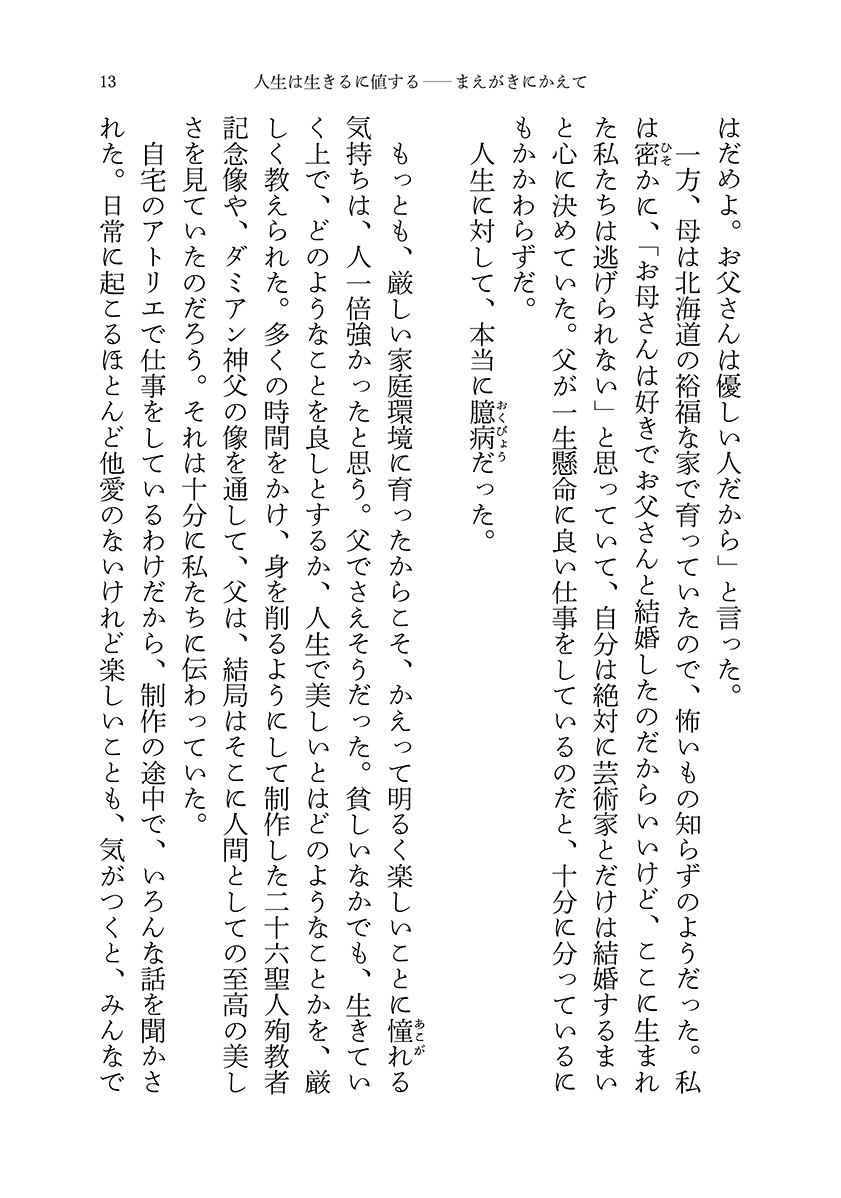 13
人生は生きるに値する――まえがきにかえて
はだめよ。お父さんは優しい人だから」と言った。
一方、母は北海道の裕福な家で育っていたので、怖いもの知らずのようだった。私
は密かに、「お母さんは好きでお父さんと結婚したのだからいいけど、ここに生まれ
た私たちは逃げられない」と思っていて、自分は絶対に芸術家とだけは結婚するまい
と心に決めていた。父が一生懸命に良い仕事をしているのだと、十分に分っているに
もかかわらずだ。
人生に対して、本当に臆病だった。
もっとも、厳しい家庭環境に育ったからこそ、かえって明るく楽しいことに憧れる
気持ちは、人一倍強かったと思う。父でさえそうだった。貧しいなかでも、生きてい
く上で、どのようなことを良しとするか、人生で美しいとはどのようなことかを、厳
しく教えられた。多くの時間をかけ、身を削るようにして制作した二十六聖人殉教者
記念像や、ダミアン神父の像を通して、父は、結局はそこに人間としての至高の美し
さを見ていたのだろう。それは十分に私たちに伝わっていた。
自宅のアトリエで仕事をしているわけだから、制作の途中で、いろんな話を聞かさ
れた。日常に起こるほとんど他愛のないけれど楽しいことも、気がつくと、みんなで